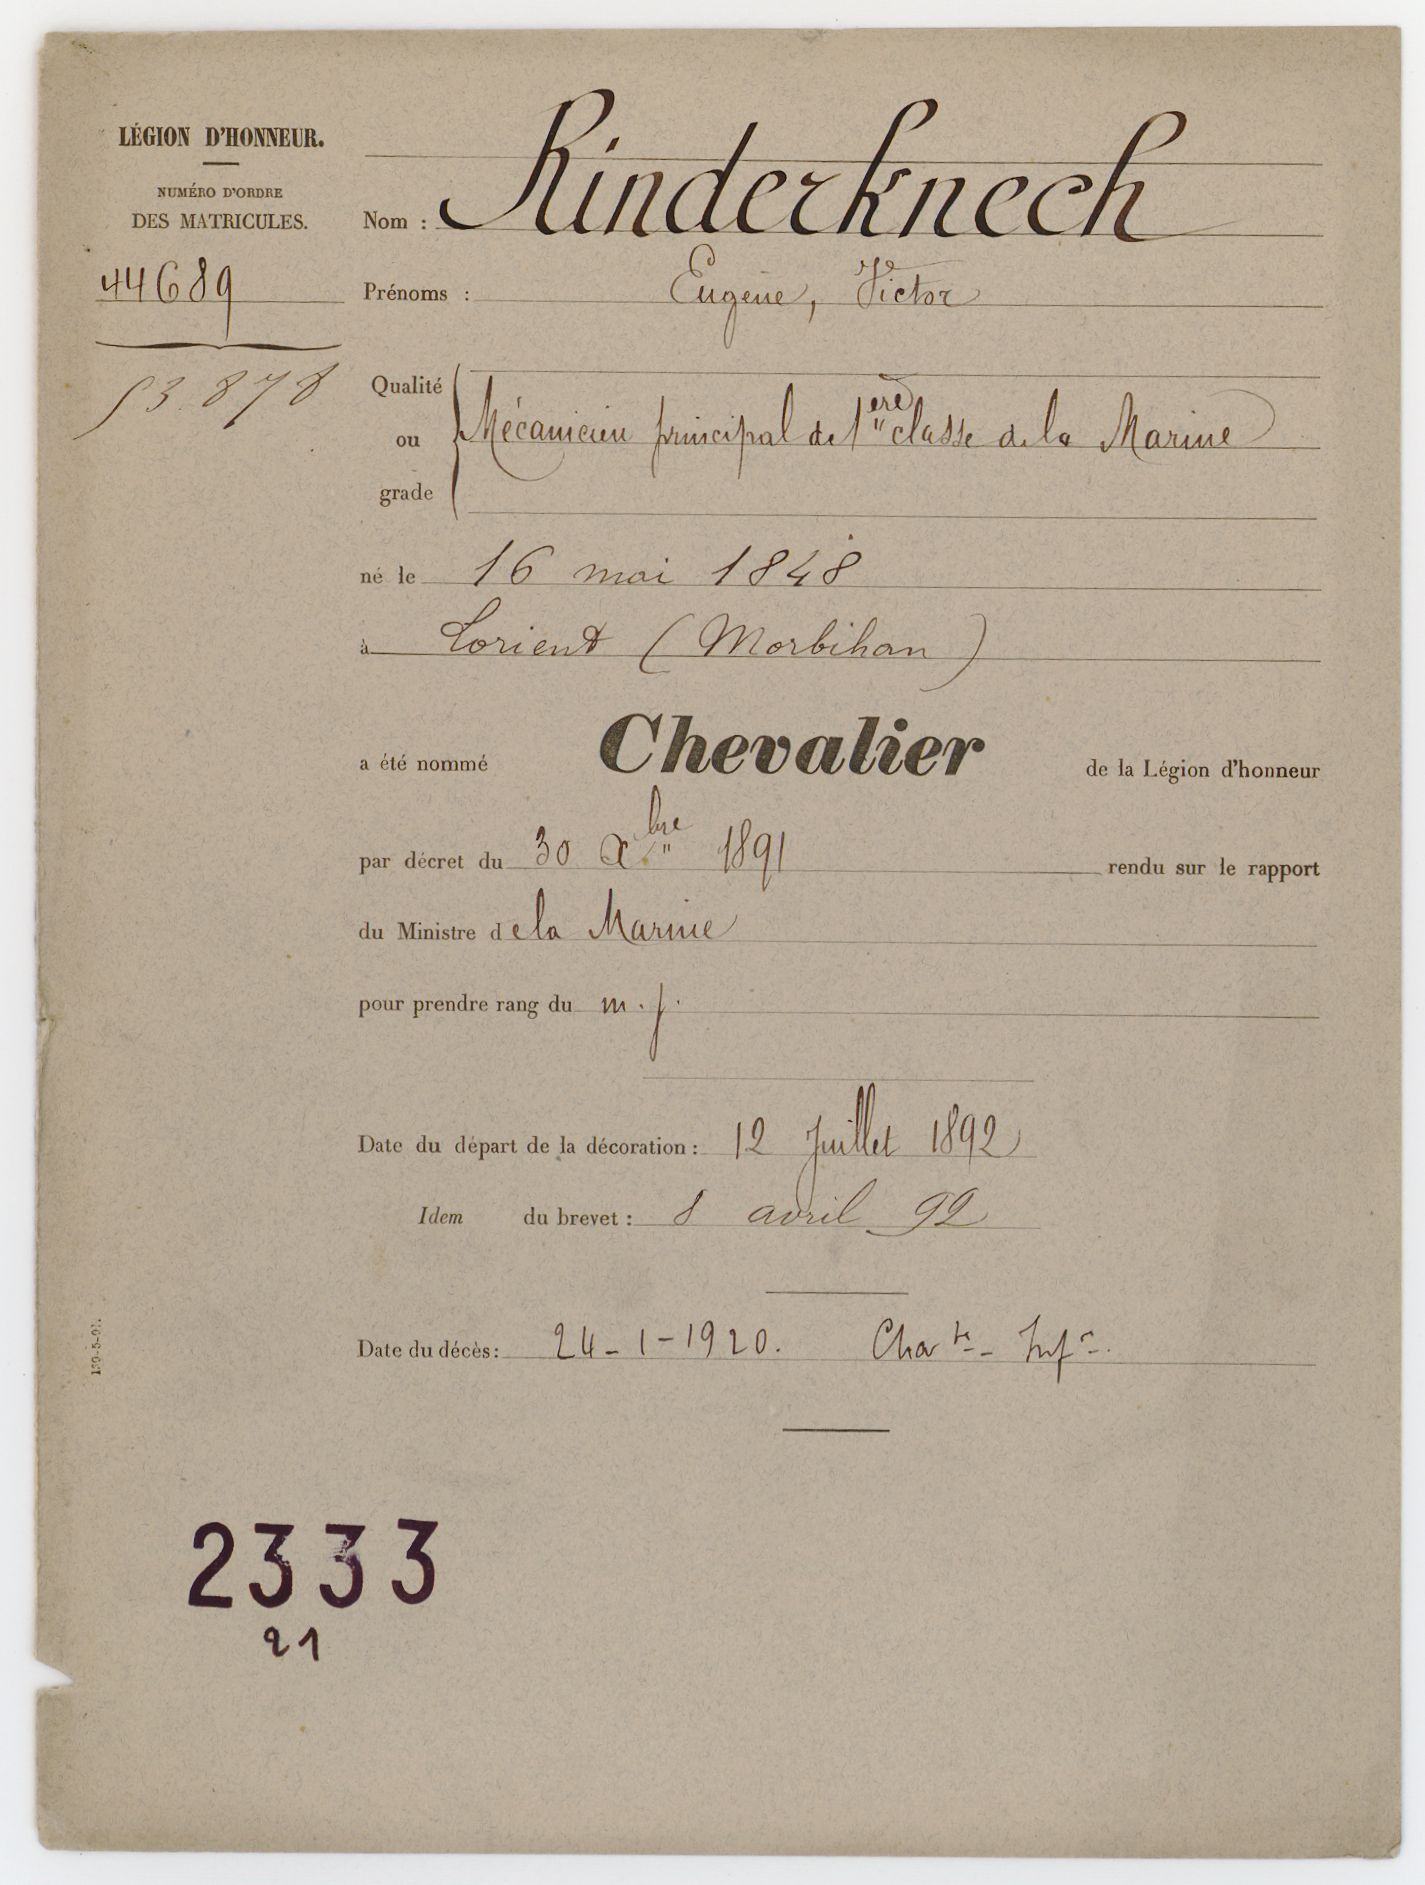 LÉGION D'HONNEUR.
NUMÉRO D'ORDRE
DES MATRICULES.
44689
53.878
Nom : Rinderknech
Prénoms : Eugène, Victor
Qualité
ou
grade
Mécanicien principal de 1ere classe de la Marine
né le 16 mai 1848
à Lorient (Morbihan)
a été nommé Chevalier de la Légion d'honneur
par décret du 30 Xbre 1891 rendu sur le rapport
du Ministre de la Marine
pour prendre rang du m. j.
Date du départ de la décoration : 12 Juillet 1892
Idem du brevet : 8 avril 92
Date du décès : 24-1-1920. Char te Inf re.
2333
21